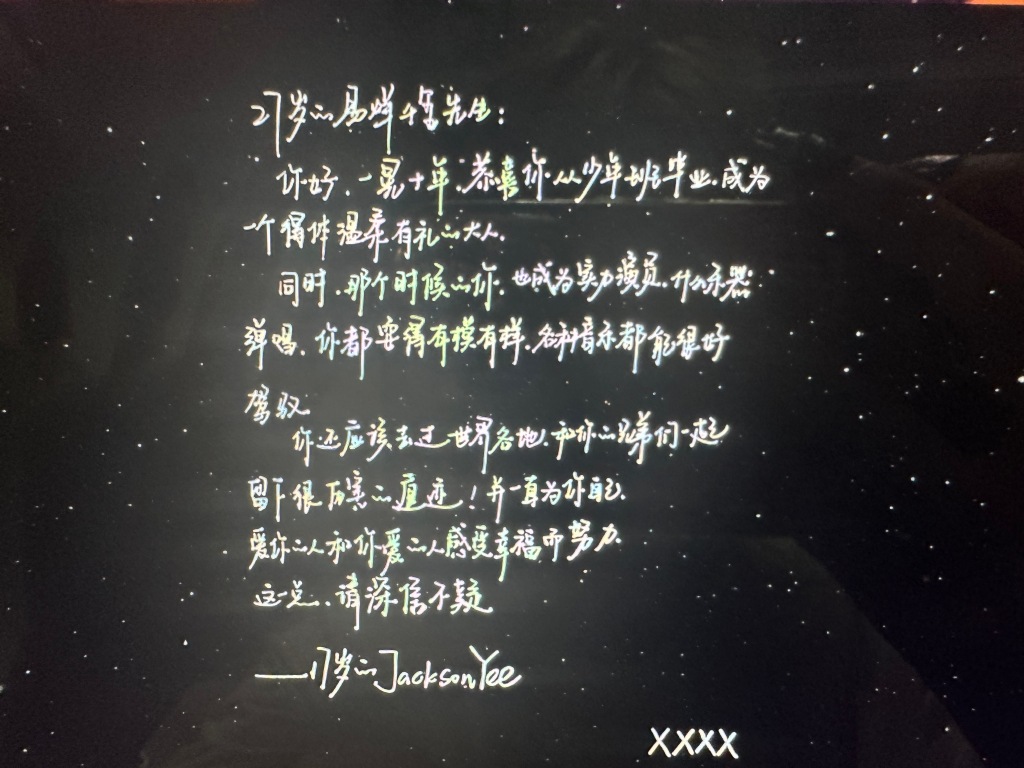 27岁的易烊千玺先生:
你好,一晃十年,恭喜你从少年班毕业,成为
一个得体温柔有礼的大人.
同时,那个时候的你,也成为实力演员,什么乐器
弹唱,你都耍得有模有样,各种音乐都能很好
驾驭
你还应该去过世界各地,和你的兄弟们一起
留下很厉害的痕迹!并一直为你自己,
爱你的人和你爱的人感受幸福而努力.
这一点,请深信不疑
——17岁的Jackson Yee
XXXX